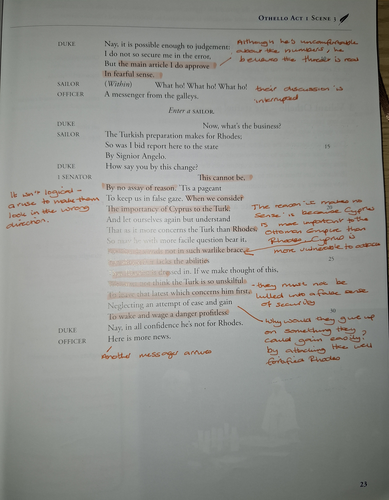 OTHELLO ACT 1 SCENE 3
DUKE Nay, it is possible enough to judgement:
I do not so secure me in the error,
But the main article I do approve
In fearful sense.
Although he's uncomfortable
about the numbers, he
believes the threat is real
SAILOR (Within) What ho! What ho! What ho!
OFFICER A messenger from the galleys.
their discussion is
interrupted
Enter a SAILOR.
DUKE Now, what's the business?
SAILOR The Turkish preparation makes for Rhodes;
So was I bid report here to the state 15
By Signior Angelo.
DUKE How say you by this change?
1 SENATOR This cannot be,
By no assay of reason. 'Tis a pageant
To keep us in false gaze. When we consider
The importancy of Cyprus to the Turk, 20
And let ourselves again but understand
That as it more concerns the Turk than Rhodes
So may he with more facile question bear it,
in such warlike brace,
lacks the abilities 25
in. If we make thought of this,
think the Turk is so unskilful
To leave that latest which concerns him first,
Neglecting an attempt of ease and gain
To wake and wage a danger profitless. 30
DUKE Nay, in all confidence he's not for Rhodes.
OFFICER Here is more news.
It isn't logical -
a ruse to make them
look in the wrong
direction.
The reason it makes no
sense is because Cyprus
is more important to the
Ottoman Empire than
Rhodes. Cyprus is
more vulnerable to
- they must not be
lulled into a false sense
of security
Why would they give up
on something they
could gain easily,
by attacking the well
fortified Rhodes
Another message arrives
23